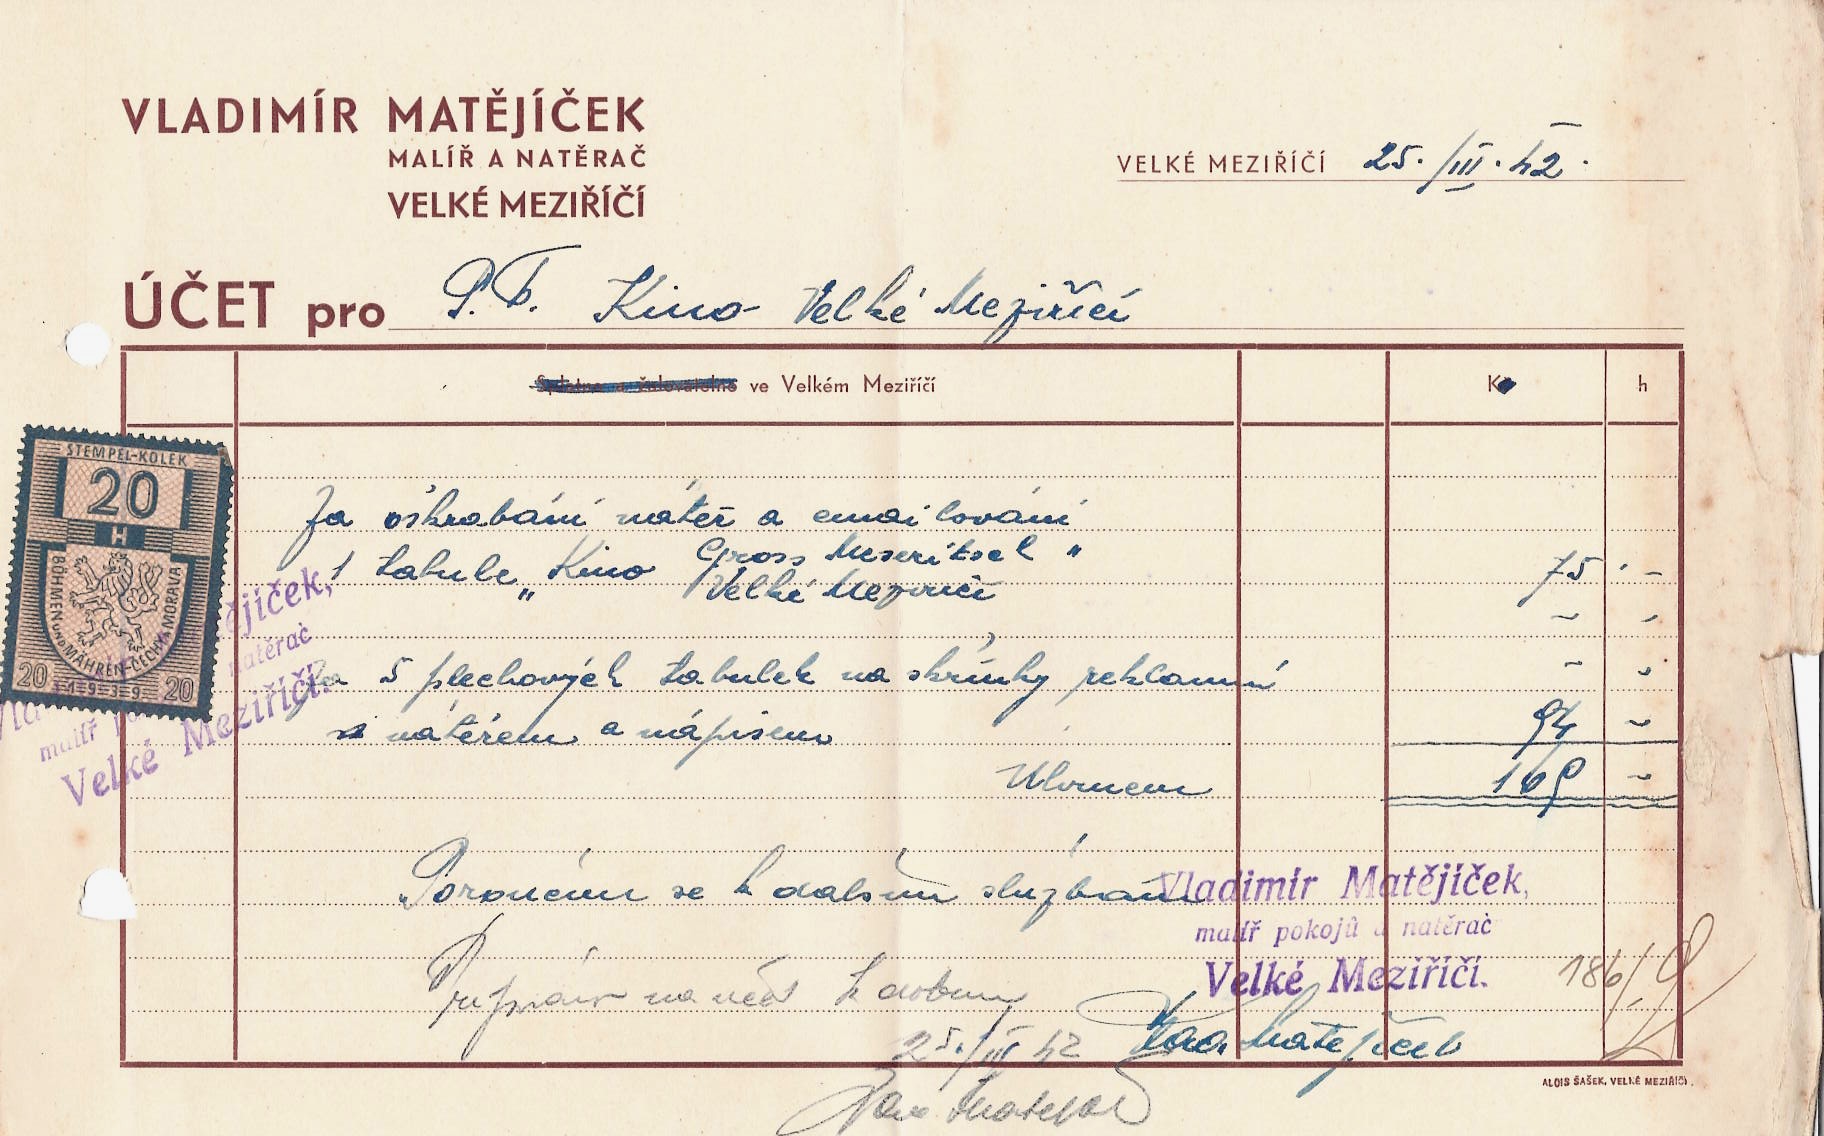 VLADIMÍR MATĚJÍČEK
MALÍŘ A NATĚRAČ
VELKÉ MEZIŘÍČÍ
VELKÉ MEZIŘÍČÍ 25. /III. 42.
ÚČET pro P. T. Kino Velké Meziříčí
Splatno a žalovatelno ve Velkém Meziříčí
K h
STEMPEL-KOLEK
20
H
BÖHMEN UND MÄHREN-ČECHY A MORAVA
20 1939 20
Za oškrabání nátěr a emailování
1 tabule „Kino Gross Meseritsch"
„ Velké Meziříčí 75.-
Za 5 plechových tabulek na skříňky reklamní
s nátěrem a nápisem 94 -
Úhrnem 169 -
Poroučím se k dalším službám
Vladimír Matějíček,
malíř pokojů a natěrač
Velké Meziříčí.
Vladimír Matějíček,
malíř pokojů a natěrač
Velké Meziříčí.
na účet
186/
25./III 42
Vlad. Matějíček
ALOIS ŠAŠEK, VELKÉ MEZIŘÍČÍ.